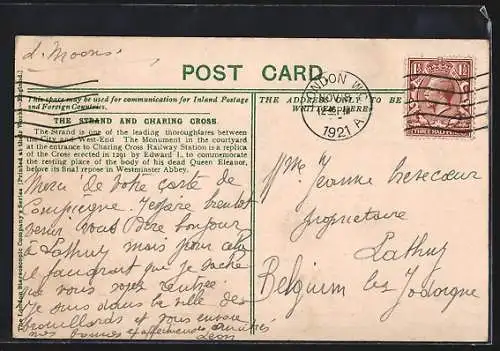 L. Moons
POST CARD
This space may be used for communication for Inland Postage
and Foreign Countries.
THE ADDRESS ONLY TO BE
WRITTEN HERE.
LONDON W.C.
1921
A
THREE HALFPENCE
THE STRAND AND CHARING CROSS.
The Strand is one of the leading thoroughfares between
the City and West-End. The Monument in the courtyard
at the entrance to Charing Cross Railway Station is a replica
of the Cross erected in 1291 by Edward I., to commemorate
the resting place of the body of his dead Queen Eleanor,
before its final repose in Westminster Abbey.
The London Stereoscopic Company's Series
Merci de votre carte de
Compiègne. J'espère bientôt
venir vous dire bonjour
à Lathuy mais pour cela
il faudrait que je sache
que vous soyez rentrée.
Je suis dans la ville des
brouillards et vous envoie
mes bonnes et affectueuses amitiés
Léon
Mme Jeanne
propriétaire
Lathuy
Belgium lez Jodoigne